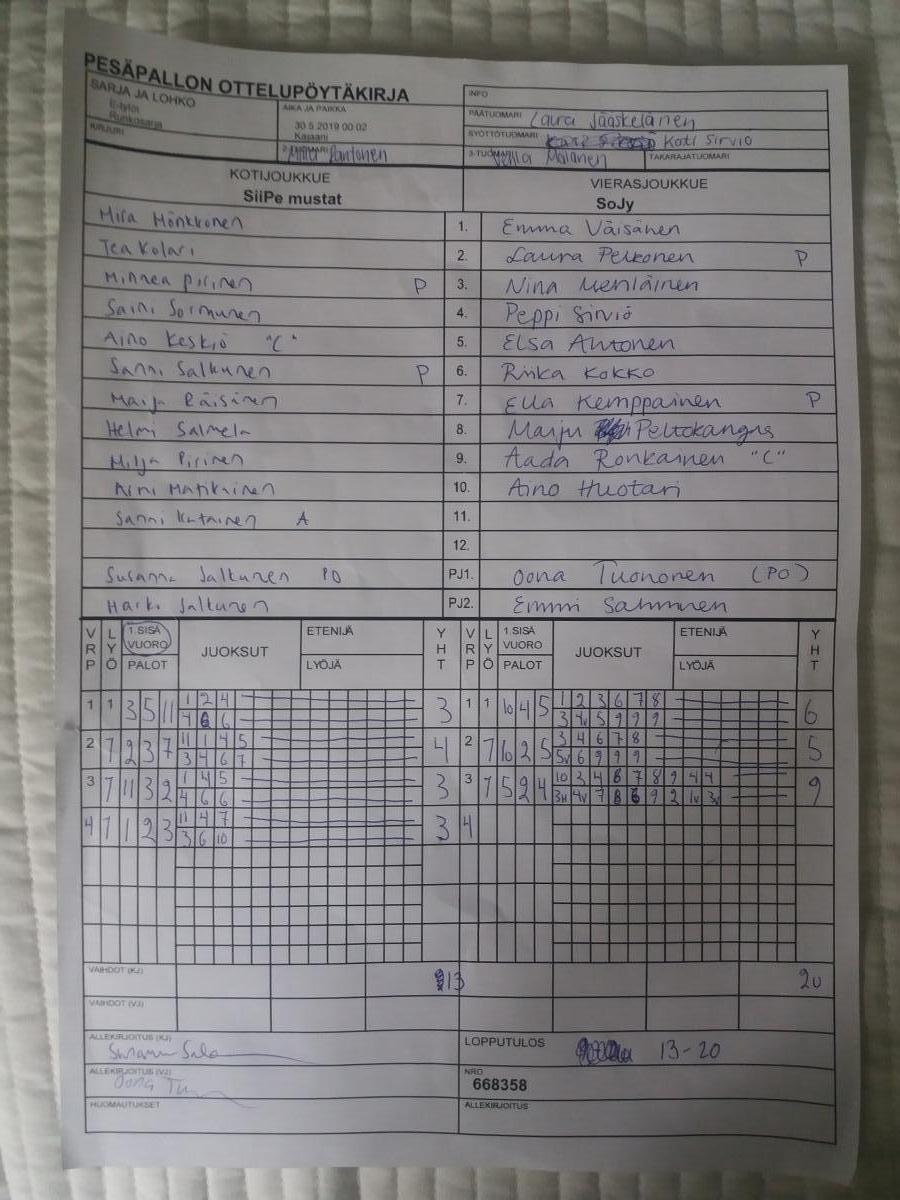 PESÄPALLON OTTELUPÖYTÄKIRJA
SARJA JA LOHKO
E-tytöt
Runkosarja
AIKA JA PAIKKA
30.5.2019 00:02
Kajaani
INFO
PÄÄTUOMARI Laura Jääskeläinen
SYÖTTÖTUOMARI Koti Sirviö
KIRJURI
2-TUOMARI
3-TUOMARI
TAKARAJATUOMARI
KOTIJOUKKUE VIERASJOUKKUE
SiiPe mustat SoJy
Mira Mönkkönen 1. Emma Väisänen
Tea Kolari 2. Laura Pelkonen P
Minnea Pirinen P 3. Nina
Saini Sormunen 4. Peppi Sirviö
Aino Keskiö "C" 5. Elsa Ahtonen
Sanni Salkunen P 6. Riika Kokko
Maija Räisänen 7. Ella Kemppainen P
Helmi Salmela 8. Marju Peltokangas
Milja Pirinen 9. Aada Ronkainen "C"
Matikainen 10. Aino Huotari
Sanni A 11.
12.
Susanna PO PJ1. Oona Tuononen (PO)
PJ2. Emmi
VRP LYÖ 1.SISÄ VUORO PALOT JUOKSUT ETENIJÄ LYÖJÄ YHT VRP LYÖ 1.SISÄ VUORO PALOT JUOKSUT ETENIJÄ LYÖJÄ YHT
1 1 3 5 11 1 2 4 3 1 1 10 4 5 1 2 3 6 7 8 6
4 6 6 3 4v 5 9 9 9
2 7 2 3 7 11 1 4 5 4 2 7 10 2 5 3 4 6 7 8 5
3 4 6 7 5v 6 9 9 9
3 7 11 3 2 1 4 5 3 3 7 5 2 4 10 3 4 6 7 8 9 4 4 9
4 6 6 7 8 9 2 1v
4 7 1 2 3 11 4 7 3 4
3 6 10
VAIHDOT (KJ) 13 20
VAIHDOT (VJ)
ALLEKIRJOITUS (KJ)
LOPPUTULOS 13-20
ALLEKIRJOITUS (VJ)
NRO
668358
HUOMAUTUKSET
ALLEKIRJOITUS